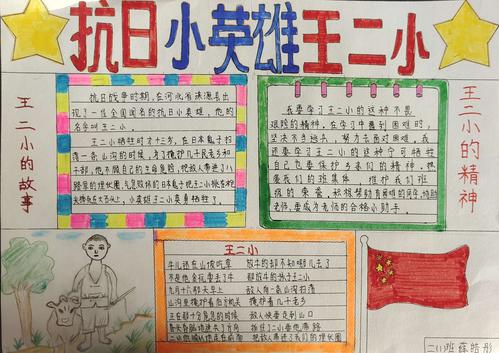 抗日小英雄王二小
王二小的故事
抗日战争时期,在河北省涞源县出
现了一位全国闻名的抗日小英雄,他的
名字叫王二小。
王二小牺牲时才十三岁,在日本鬼子扫
荡一条山沟的时候,为了掩护几千民老乡和
干部,他不顾自己的生命危险,把敌人带进了八
路军的埋伏圈,气急败坏的日本鬼子把王二小
我要学习王二小的这种不畏
艰险的精神,在学习中遇到困难时,
坚决不当逃兵,努力去面对困难,我
还要学王二小的这种宁可牺牲
自己也要保护乡亲们的精神,热
爱我们的班集体,维护我们班
级的荣誉,积极帮助有困难的同学,协助
老师,要成为老师的合格小助手。
王二小的精神
王二小
牛儿还在山坡吃草 放牛的却不知哪儿去了
不是他贪玩耍丢了牛 那放牛的孩子王二小
九月十六那天早上 敌人向一条山沟扫荡
山沟里掩护着后方机关 掩护着几千老乡
正在那十分危急的时候 敌人快要走到山口
昏头昏脑地迷失了方向 抓住二小要他带路
二小他顺从地走在前面 把敌人带进了我们的埋伏圈